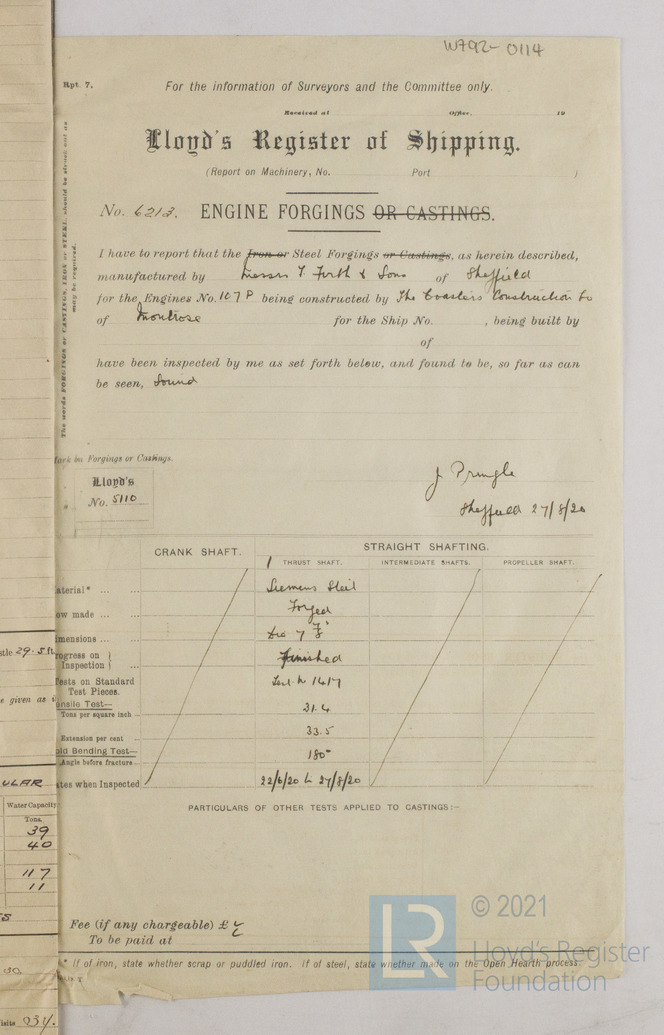 W792-0114
Rpt. 7.
For the information of Surveyors and the Committee only.
Received at Office, 19
Lloyd's Register of Shipping.
(Report on Machinery, No. Port )
No. 6213. ENGINE FORGINGS OR CASTINGS.
I have to report that the Iron or Steel Forgings or Castings, as herein described,
manufactured by Messrs T. Firth & Sons of Sheffield
for the Engines No. 107 P being constructed by The Coasters Construction Co
of Montrose for the Ship No. , being built by
of
have been inspected by me as set forth below, and found to be, so far as can
be seen, Sound
The words FORGINGS or CASTINGS, IRON or STEEL should be struck out as
may be required.
Mark on Forgings or Castings.
Lloyd's
No. 5110
J Pringle
Sheffield 27/8/20
CRANK SHAFT. STRAIGHT SHAFTING.
1 THRUST SHAFT. INTERMEDIATE SHAFTS. PROPELLER SHAFT.
aterial* ... ... Siemens Steel
ow made ... ... Forged
imensions ... ... Dia 7
rogress on
Inspection Finished
Tests on Standard
Test Pieces. Test No 1417
ensile Test—
Tons per square inch 31.4
Extension per cent 33.5
old Bending Test—
Angle before fracture 180°
ates when Inspected 22/6/20 to 27/8/20
PARTICULARS OF OTHER TESTS APPLIED TO CASTINGS:—
Fee (if any chargeable) £
To be paid at
* If of iron, state whether scrap or puddled iron. If of steel, state whether made on the Open Hearth process.
stle 29.5 ft
e given as i
ULAR
Water Capacity
Tons.
39
40
117
11
30.
isits 034.
LR
© 2021
Lloyd's Register
Foundation